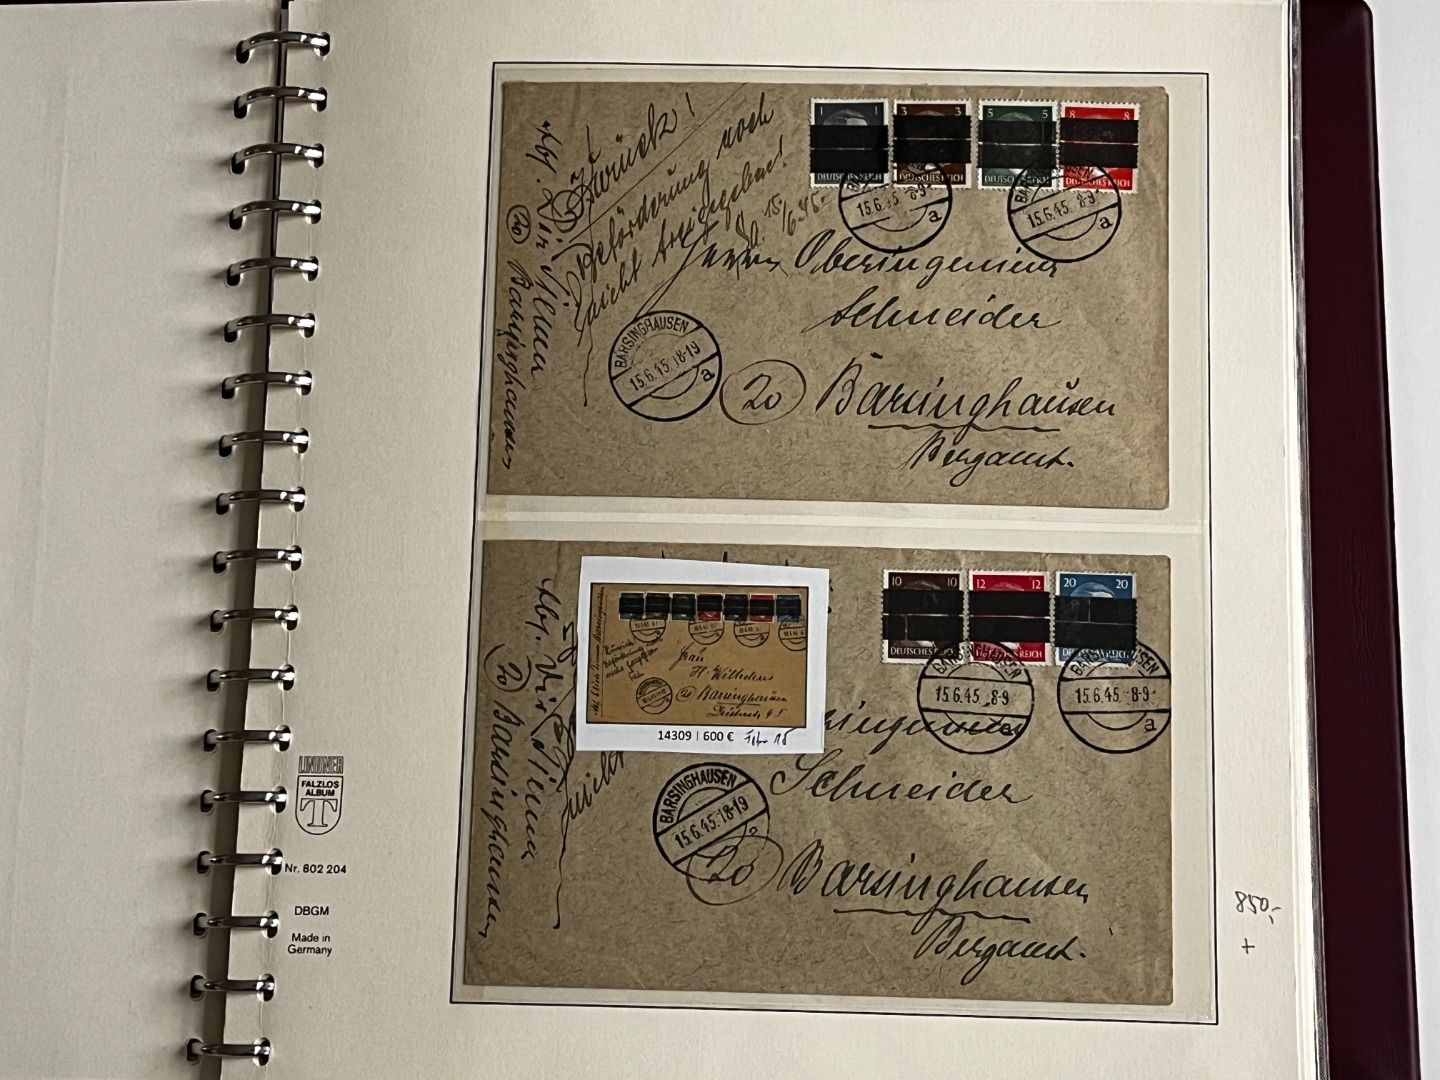 Zurück!
Beförderung noch
nicht freigegeben!
15/6.45.
Abf. Dir.
(20) Barsinghausen
1 1
DEUTSCHES REICH
3 3
DEUTSCHES REICH
5 5
DEUTSCHES REICH
8 8
DEUTSCHES REICH
15.6.45. 8-9
a
15.6.45. 8-9
a
Herrn Oberingenieur
Schneider
BARSINGHAUSEN
15.6.45. 18-19
a
20 Barsinghausen
Bergamt.
10 10
DEUTSCHES REICH
12 12
20 20
BARSINGHAUSEN
15.6.45. 8-9
15.6.45. 8-9
a
Frau
H. Wilhelms
Barsinghausen
14309 | 600 €
Abf. Dir.
(20) Barsinghausen
nicht
Schneider
BARSINGHAUSEN
15.6.45. 18-19
20 Barsinghausen
Bergamt.
LINDNER
FALZLOS
ALBUM
T
Nr. 802 204
DBGM
Made in
Germany
850,-
+